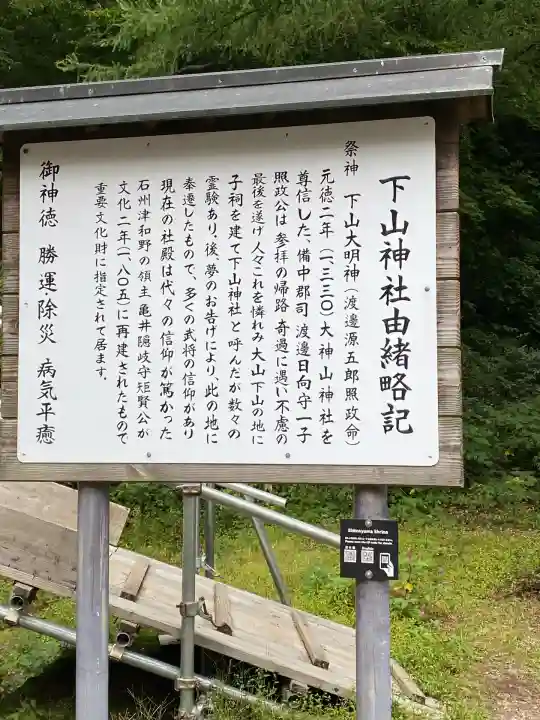 下山神社由緒略記
祭神　下山大明神（渡邊源五郎照政命）
元徳二年（一、三三〇）大神山神社を
尊信した、備中郡司 渡邊日向守一子
照政公は、参拝の帰路 奇過に遇い不慮の
最後を遂げ 人々これを憐れみ 大山 下山の地に
子祠を建て下山神社と呼んだが 数々の
霊験あり、後、夢のお告げにより、此の地に
奉遷したもので、多くの武将の信仰があり
現在の社殿は代々の信仰が篤かった
石州津和野の領主 亀井隠岐守矩賢公が
文化二年（一、八〇五）に再建されたもので
重要文化財に指定されて居ます．
御神徳　勝運・除災　病気平癒
Shimoyama Shrine
日本語
English